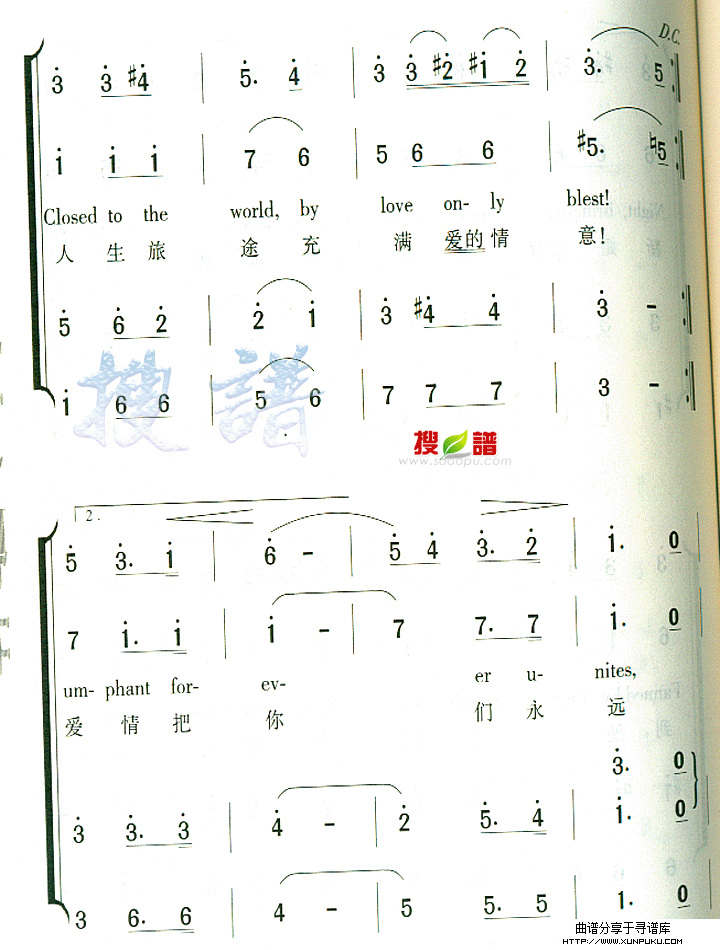 D.C.
3 3 #4 | 5. 4 | 3 3 #2 #1 2 | 3. 5 :|
1 1 1 | 7 6 | 5 6 6 | #5. ♮5 :|
Closed to the world, by love on- ly blest!
人 生 旅 途 充 满 爱的 情 意！
5 6 2 | 2 1 | 3 #4 4 | 3 – :|
1 6 6 | 5 6 | 7 7 7 | 3 – :|
搜 譜
搜 譜
www.sooopu.com
2.
5 3. 1 | 6 – | 5 4 3. 2 | 1. 0
7 1. 1 | 1 – | 7 7. 7 | 1. 0
um- phant for- ev- er u- nites,
爱 情 把 你 们 永 远
3. 0
3 3. 3 | 4 – | 2 5. 4 | 1. 0
3 6. 6 | 4 – | 5 5. 5 | 1. 0
曲谱分享于寻谱库
HTTP://WWW.XUNPUKU.COM